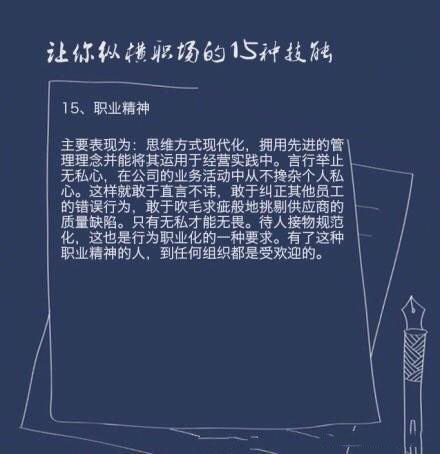 让你纵横职场的15种技能
15、职业精神
主要表现为：思维方式现代化，拥用先进的管
理理念并能将其运用于经营实践中。言行举止
无私心，在公司的业务活动中从不掺杂个人私
心。这样就敢于直言不讳，敢于纠正其他员工
的错误行为，敢于吹毛求疵般地挑剔供应商的
质量缺陷。只有无私才能无畏。待人接物规范
化，这也是行为职业化的一种要求。有了这种
职业精神的人，到任何组织都是受欢迎的。